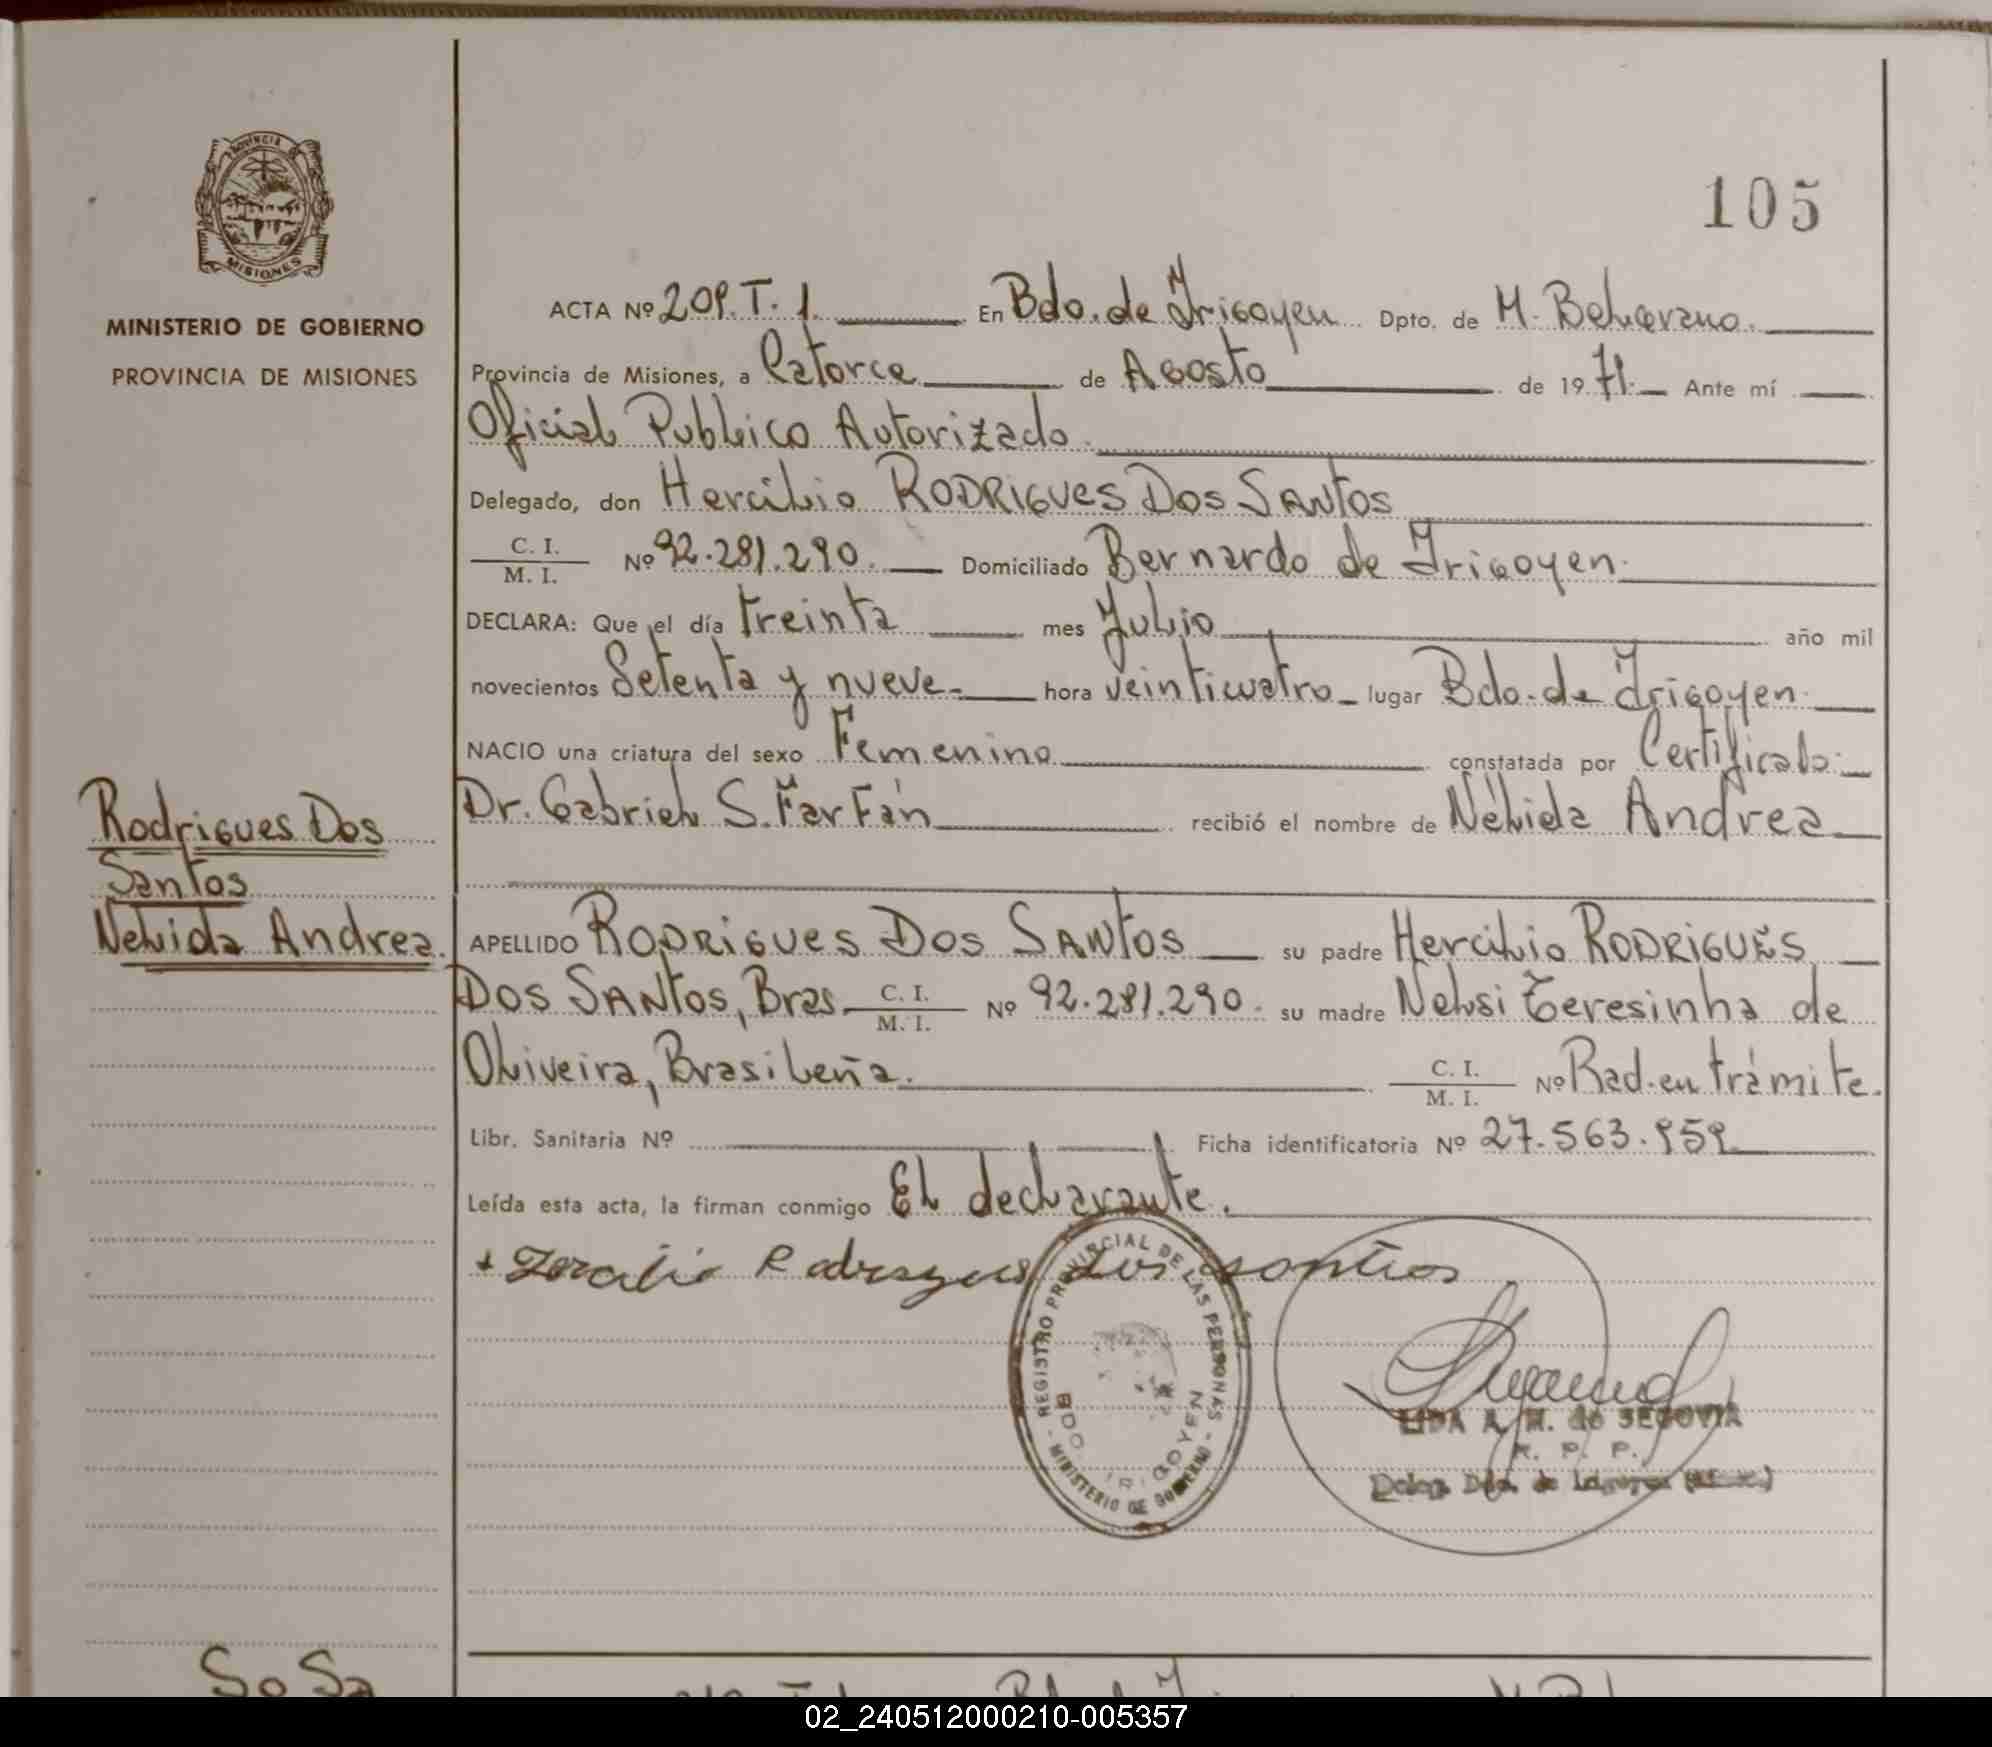 PROVINCIA DE
MISIONES
MINISTERIO DE GOBIERNO
PROVINCIA DE MISIONES
105
ACTA Nº 209. T. 1. En Bdo. de Irigoyen Dpto. de M. Belgrano.
Provincia de Misiones, a Catorce de Agosto de 1971. Ante mí
Oficial Publico Autorizado.
Delegado, don Hercilio RODRIGUES DOS SANTOS
C. I.
M. I. Nº 92.281.290. Domiciliado Bernardo de Irigoyen.
DECLARA: Que el día treinta mes Julio año mil
novecientos Setenta y nueve hora veinticuatro lugar Bdo. de Irigoyen.
NACIO una criatura del sexo Femenino constatada por Certificado:
Dr. Gabriel S. Farfán recibió el nombre de Nélida Andrea
Rodrigues Dos
Santos
Nelida Andrea.
APELLIDO RODRIGUES DOS SANTOS su padre Hercilio RODRIGUES
DOS SANTOS, Bras. C. I.
M. I. Nº 92.281.290. su madre Nelsi Teresinha de
Oliveira, Brasileña. C. I.
M. I. Nº Rad. en trámite.
Libr. Sanitaria Nº Ficha identificatoria Nº 27.563.959
Leída esta acta, la firman conmigo El declarante.
REGISTRO PROVINCIAL DE LAS PERSONAS
BDO. IRIGOYEN
MINISTERIO DE GOBIERNO
LIDA A. M. de SEGOVIA
R. P. P.
SoSa
02_240512000210-005357